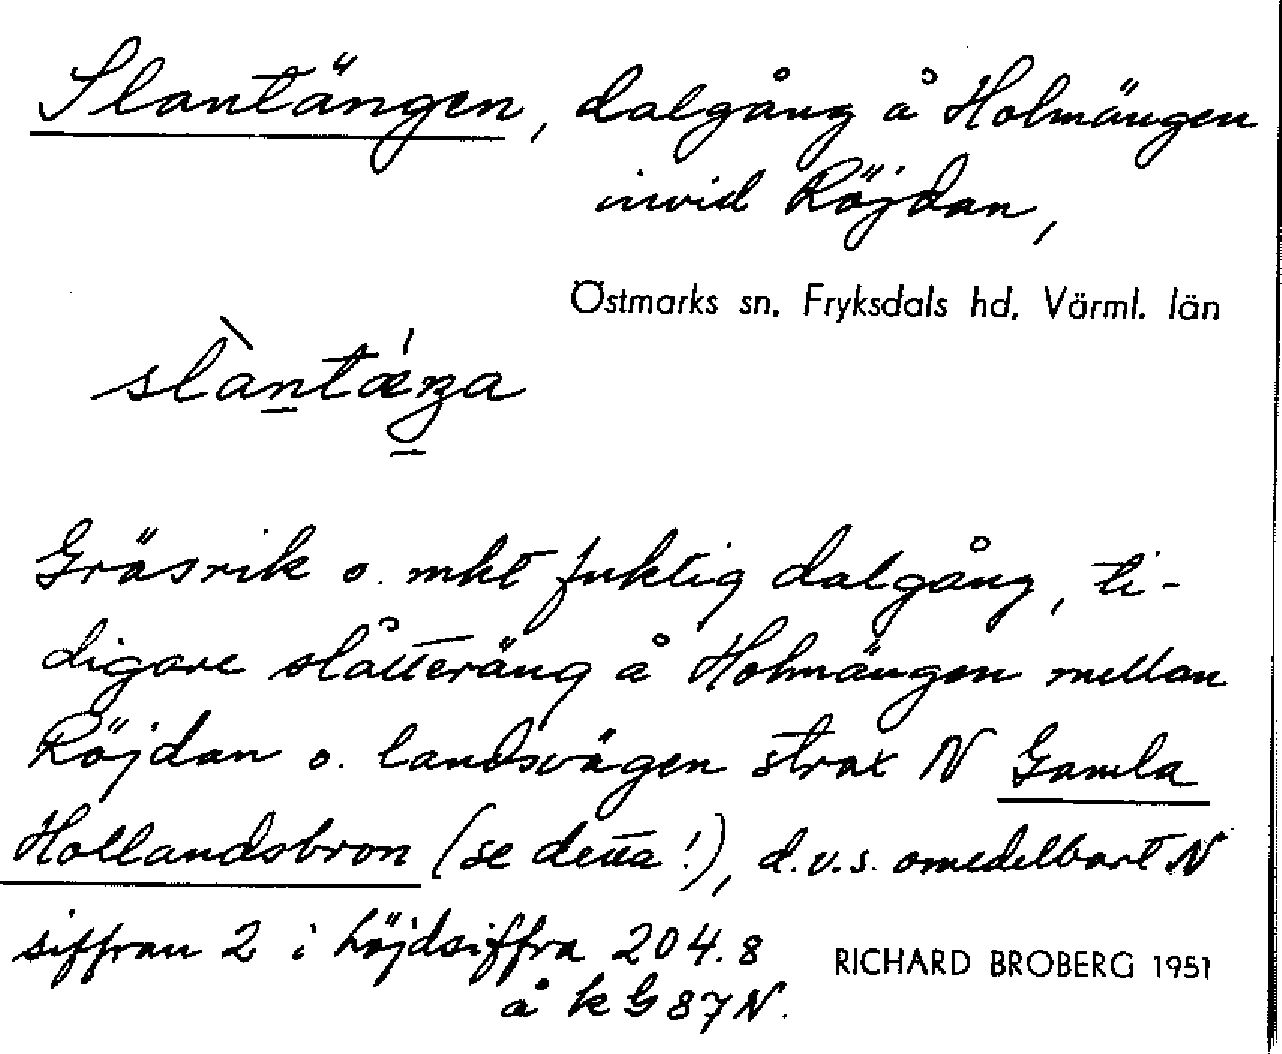 Slantängen, dalgång å Holmängen
invid Röjdan,
Östmarks sn. Fryksdals hd. Värml. län
slàntǽŋa
Gräsrik o. mkt fuktig dalgång, ti-
digare slåtteräng å Holmängen mellan
Röjdan o. landsvägen strax N Gamla
Hollandsbron (se detta!), d.v.s. omedelbart N
siffran 2 i höjdsiffra 204.8
RICHARD BROBERG 1951
å k G 87 N.